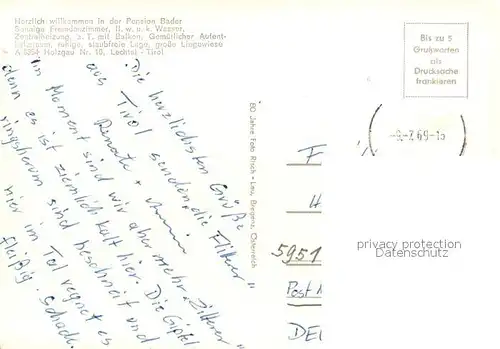 Herzlich willkommen in der Pension Bader
Sonnige Fremdenzimmer, fl. w. u. k. Wasser,
Zentralheizung, z. T. mit Balkon, Gemütlicher Aufent-
haltsraum, ruhige, staubfreie Lage, große Liegewiese
A 6654 Holzgau Nr. 10, Lechtal - Tirol
Bis zu 5
Grußworten
als
Drucksache
frankieren
-9.-7.69-15
Die herzlichsten Grüße
aus Tirol senden die Flitterer
Renate +
Im Moment sind wir aber mehr „Zitterer"
denn es ist ziemlich kalt hier. Die Gipfel
ringsherum sind beschneit und
hier im Tal regnet es
fleißig. Schade.
80 Jahre Foto Risch-Lau, Bregenz, Österreich
F
H
5951
Post
DE
privacy protection
Datenschutz